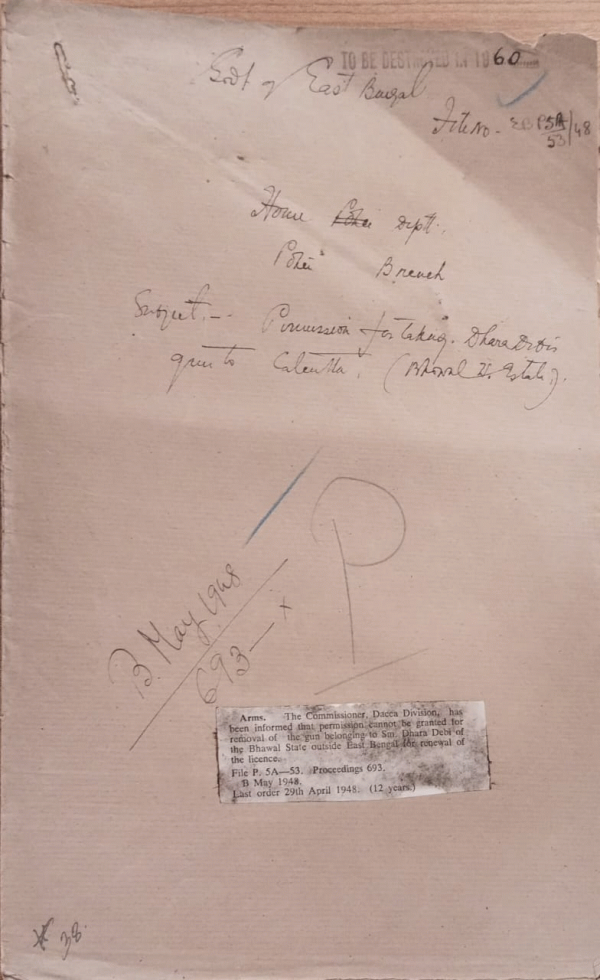 TO BE DESTROYED IN 1960
Govt of East Bengal
File No. - EB P5A/53/48
Home Police Deptt.
Police Branch
Subject. - Permission for taking Dhara Debi's
gun to Calcutta. (Bhowal Estate).
P
B. May 1948
693 - x
Arms. The Commissioner, Dacca Division, has
been informed that permission cannot be granted for
removal of the gun belonging to Sm. Dhara Debi of
the Bhawal State outside East Bengal for renewal of
the licence.
File P. 5A—53. Proceedings 693.
B May 1948.
Last order 29th April 1948. (12 years.)
38